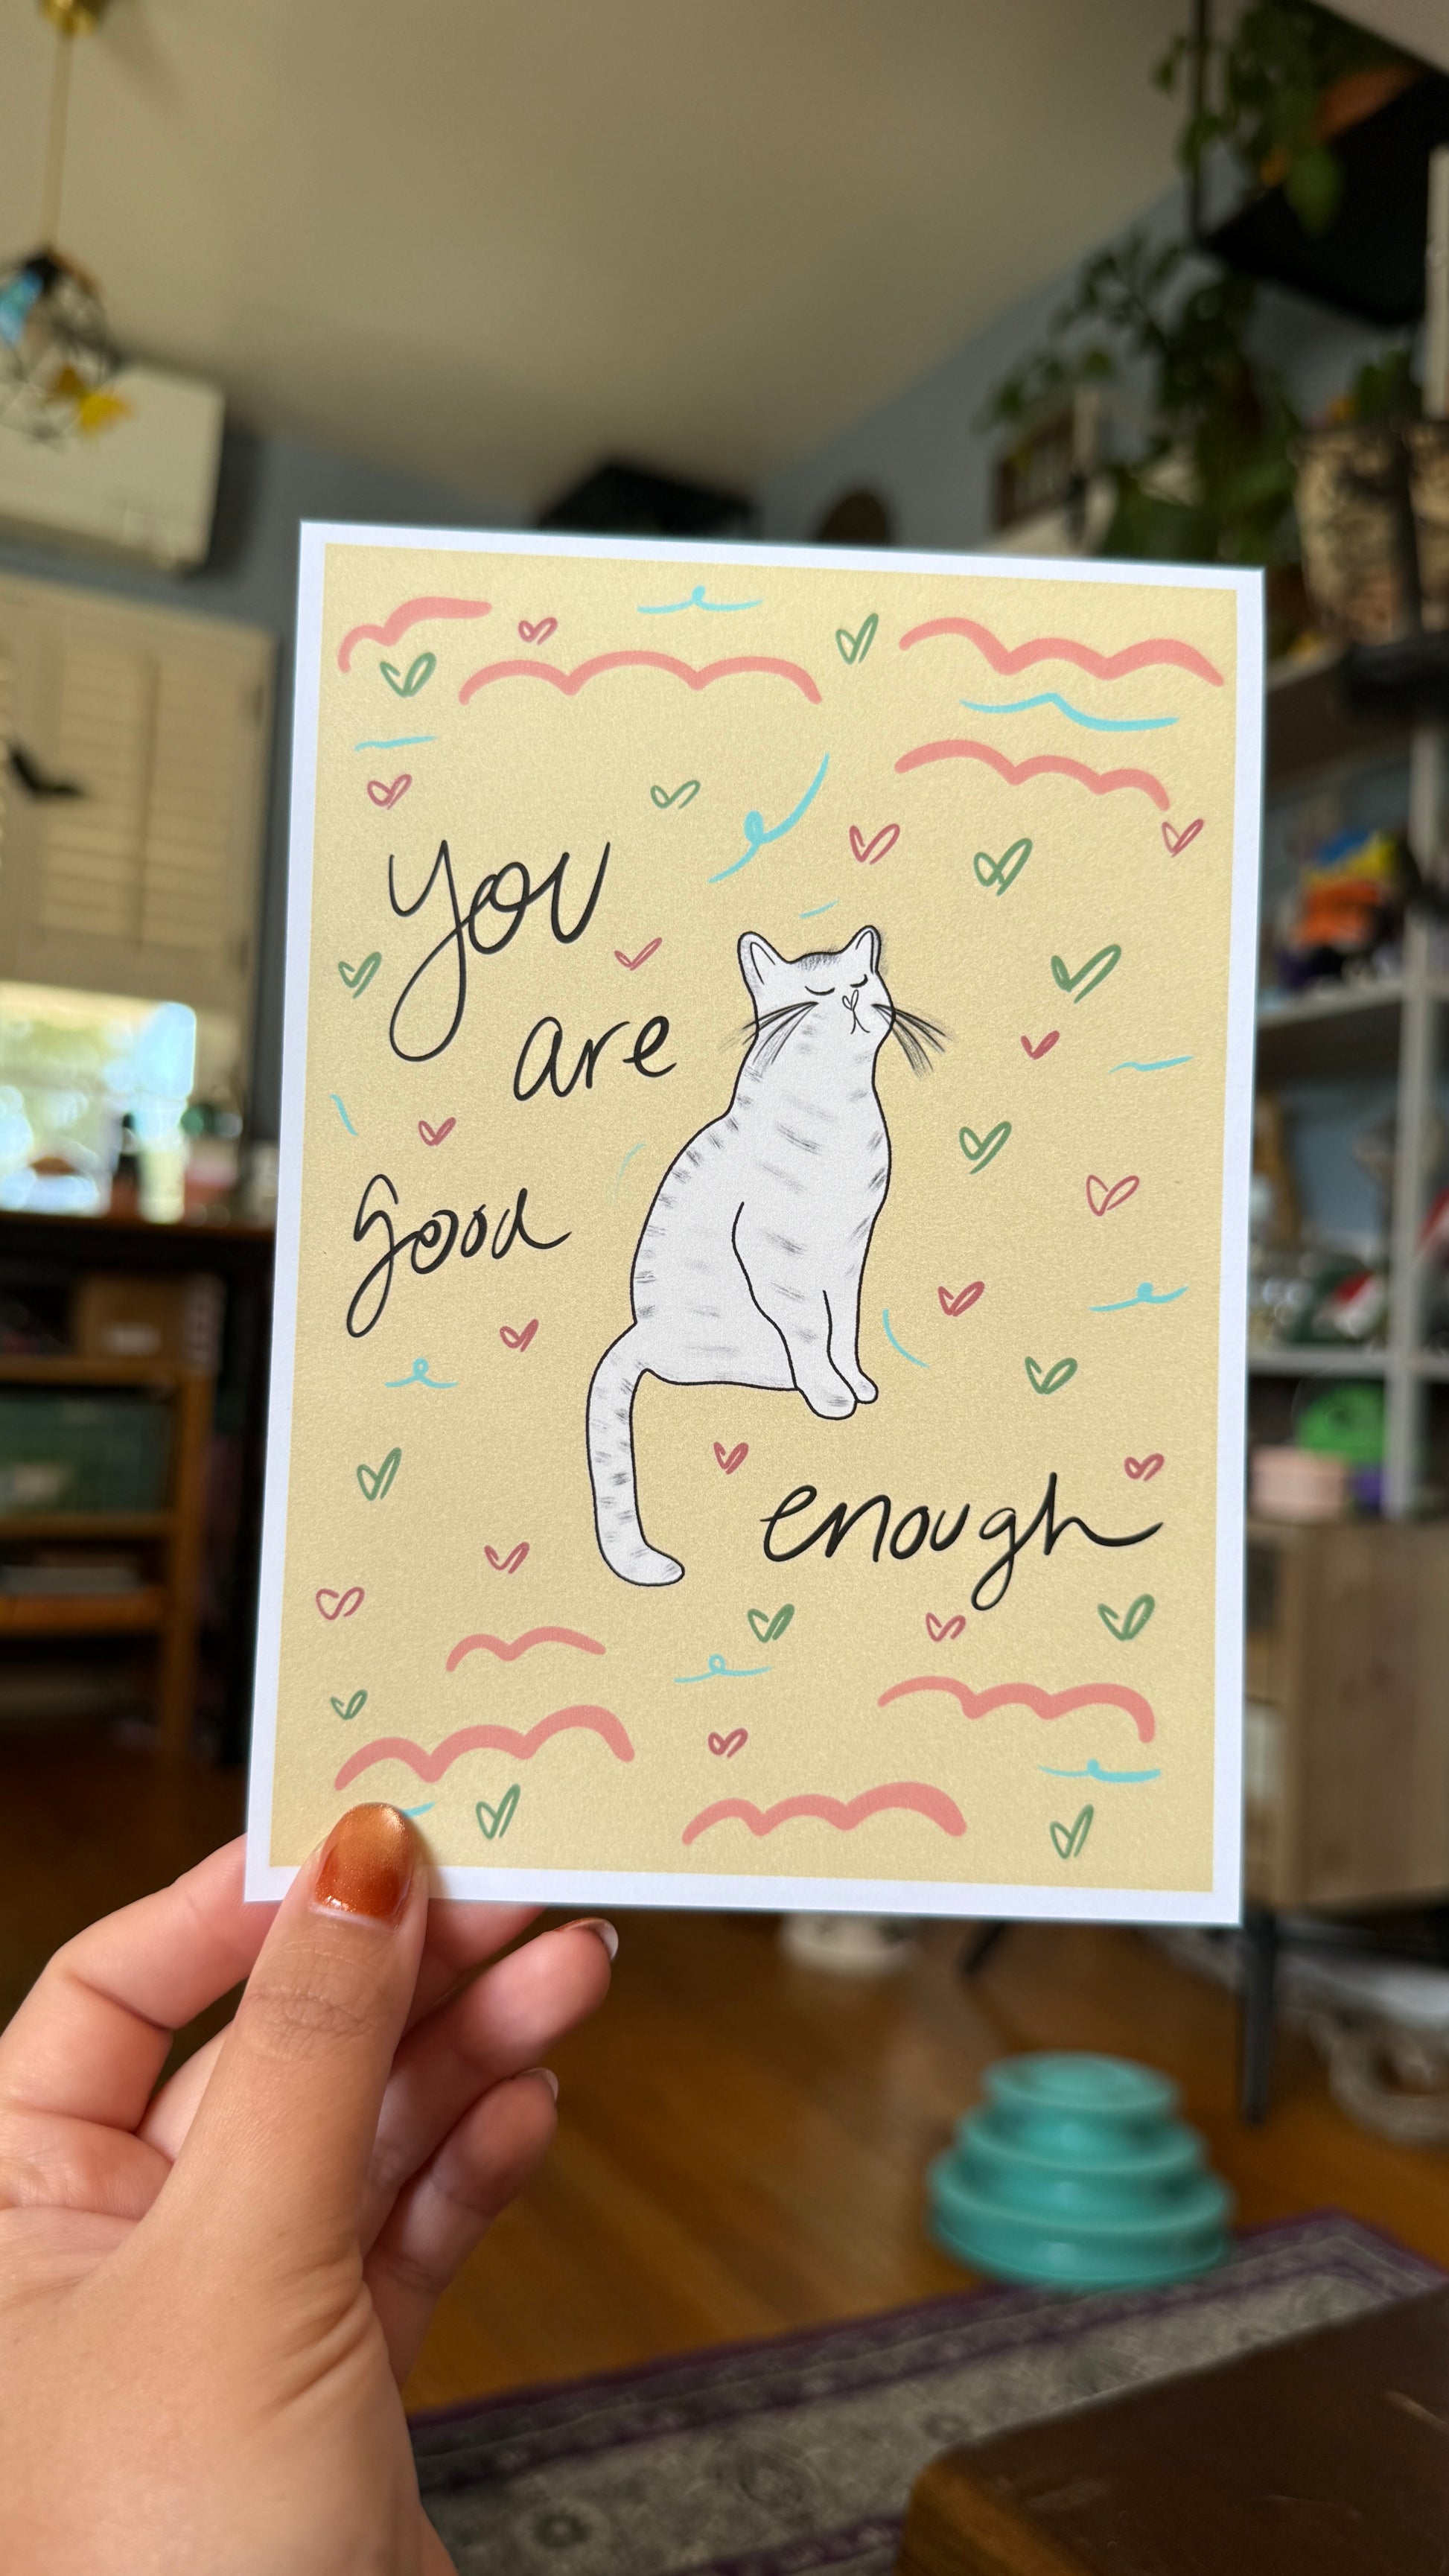 you
are
good
enough